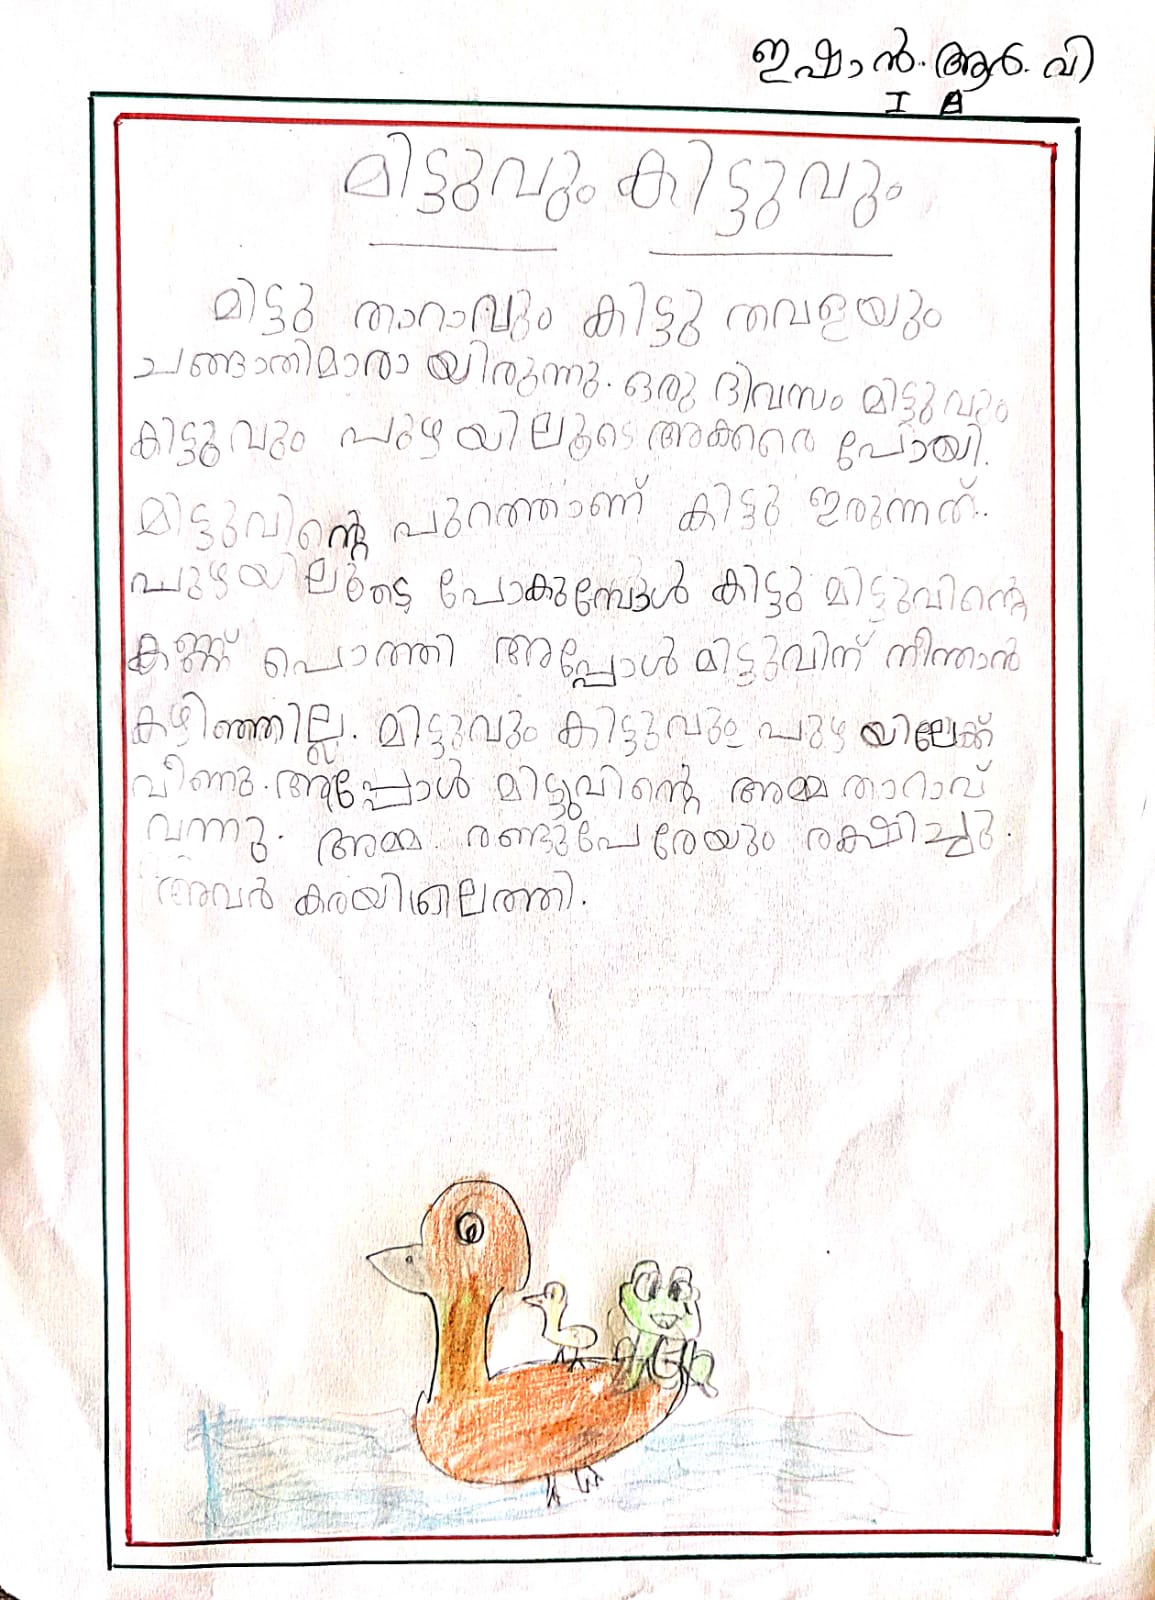 ഇഷാൻ.ആർ.വി
I A
മിട്ടുവും കിട്ടുവും
മിട്ടു താറാവും കിട്ടു തവളയും
ചങ്ങാതിമാരാ യിരുന്നു. ഒരു ദിവസം മിട്ടുവും
കിട്ടുവും പുഴ യിലൂടെ അക്കരെ പോയി.
മിട്ടുവിന്റെ പുറത്താണ് കിട്ടു ഇരുന്നത്.
പുഴയിലൂടെ പോകുമ്പോൾ കിട്ടു മിട്ടുവിന്റെ
കണ്ണ് പൊത്തി അപ്പോൾ മിട്ടുവിന് നീന്താൻ
കഴിഞ്ഞില്ല. മിട്ടുവും കിട്ടുവും പുഴ യിലേക്ക്
വീണു. അപ്പോൾ മിട്ടുവിന്റെ അമ്മ താറാവ്
വന്നു. അമ്മ രണ്ടുപേരേയും രക്ഷിച്ചു.
അവർ കരയിലെത്തി.